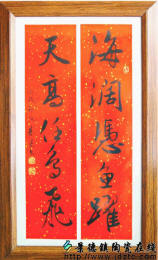 海阔憑鱼躍
天高任鸟飛
景德鎮陶瓷在线
www.jdztc.com